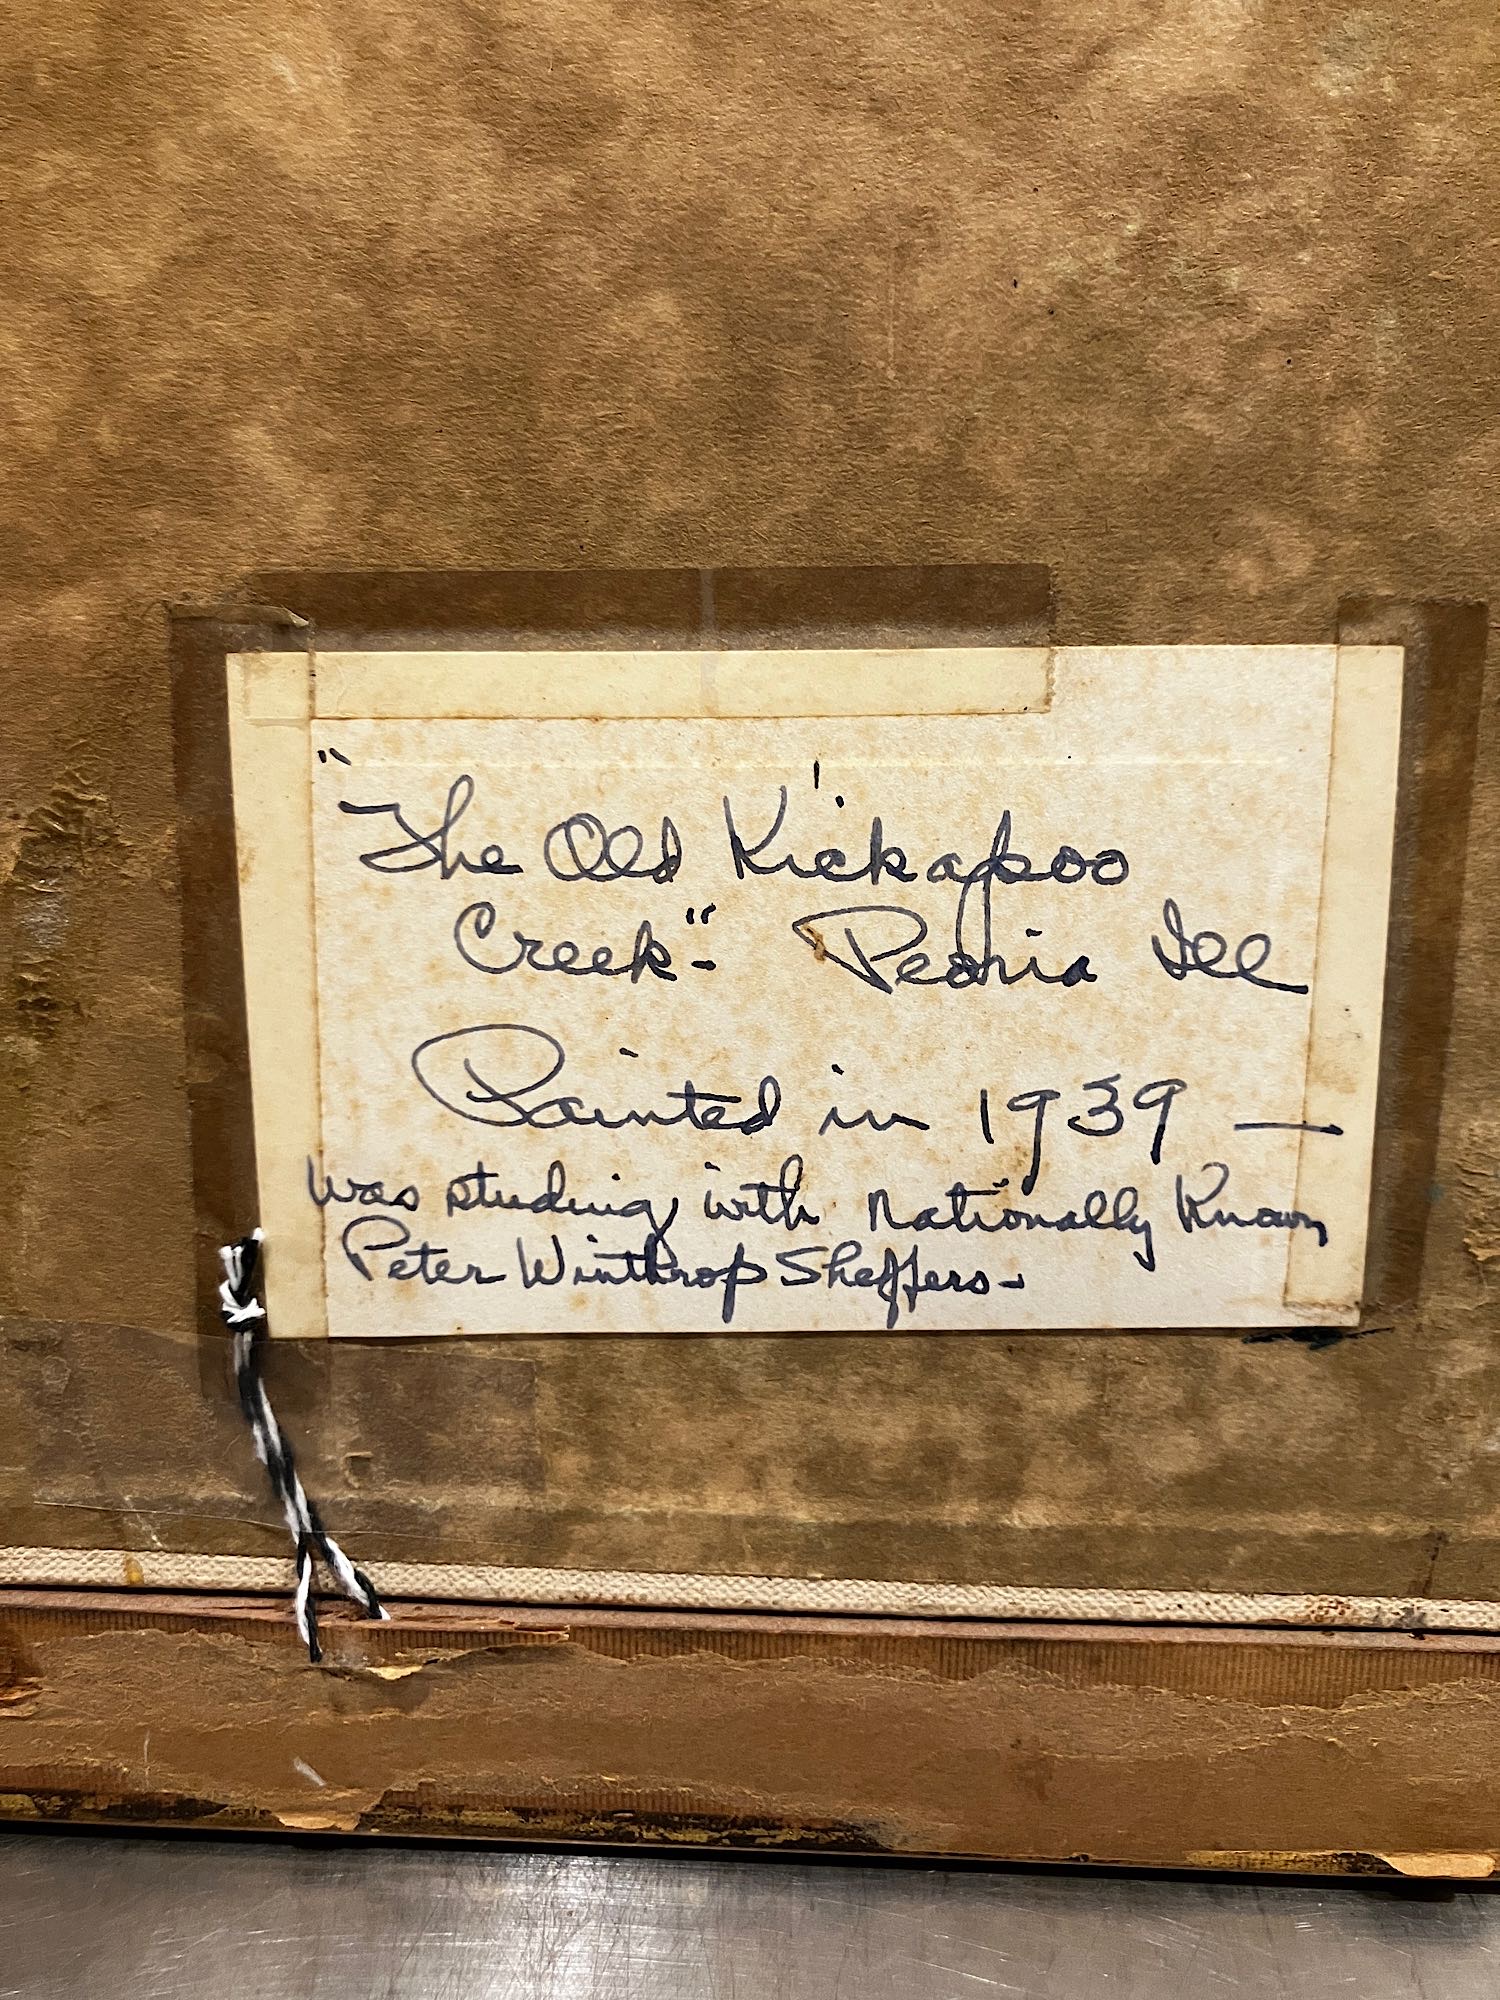 "The Old Kickapoo
Creek"- Peoria Ill
Painted in 1939 —
Was studing with nationally Known
Peter Winthrop Sheffers-